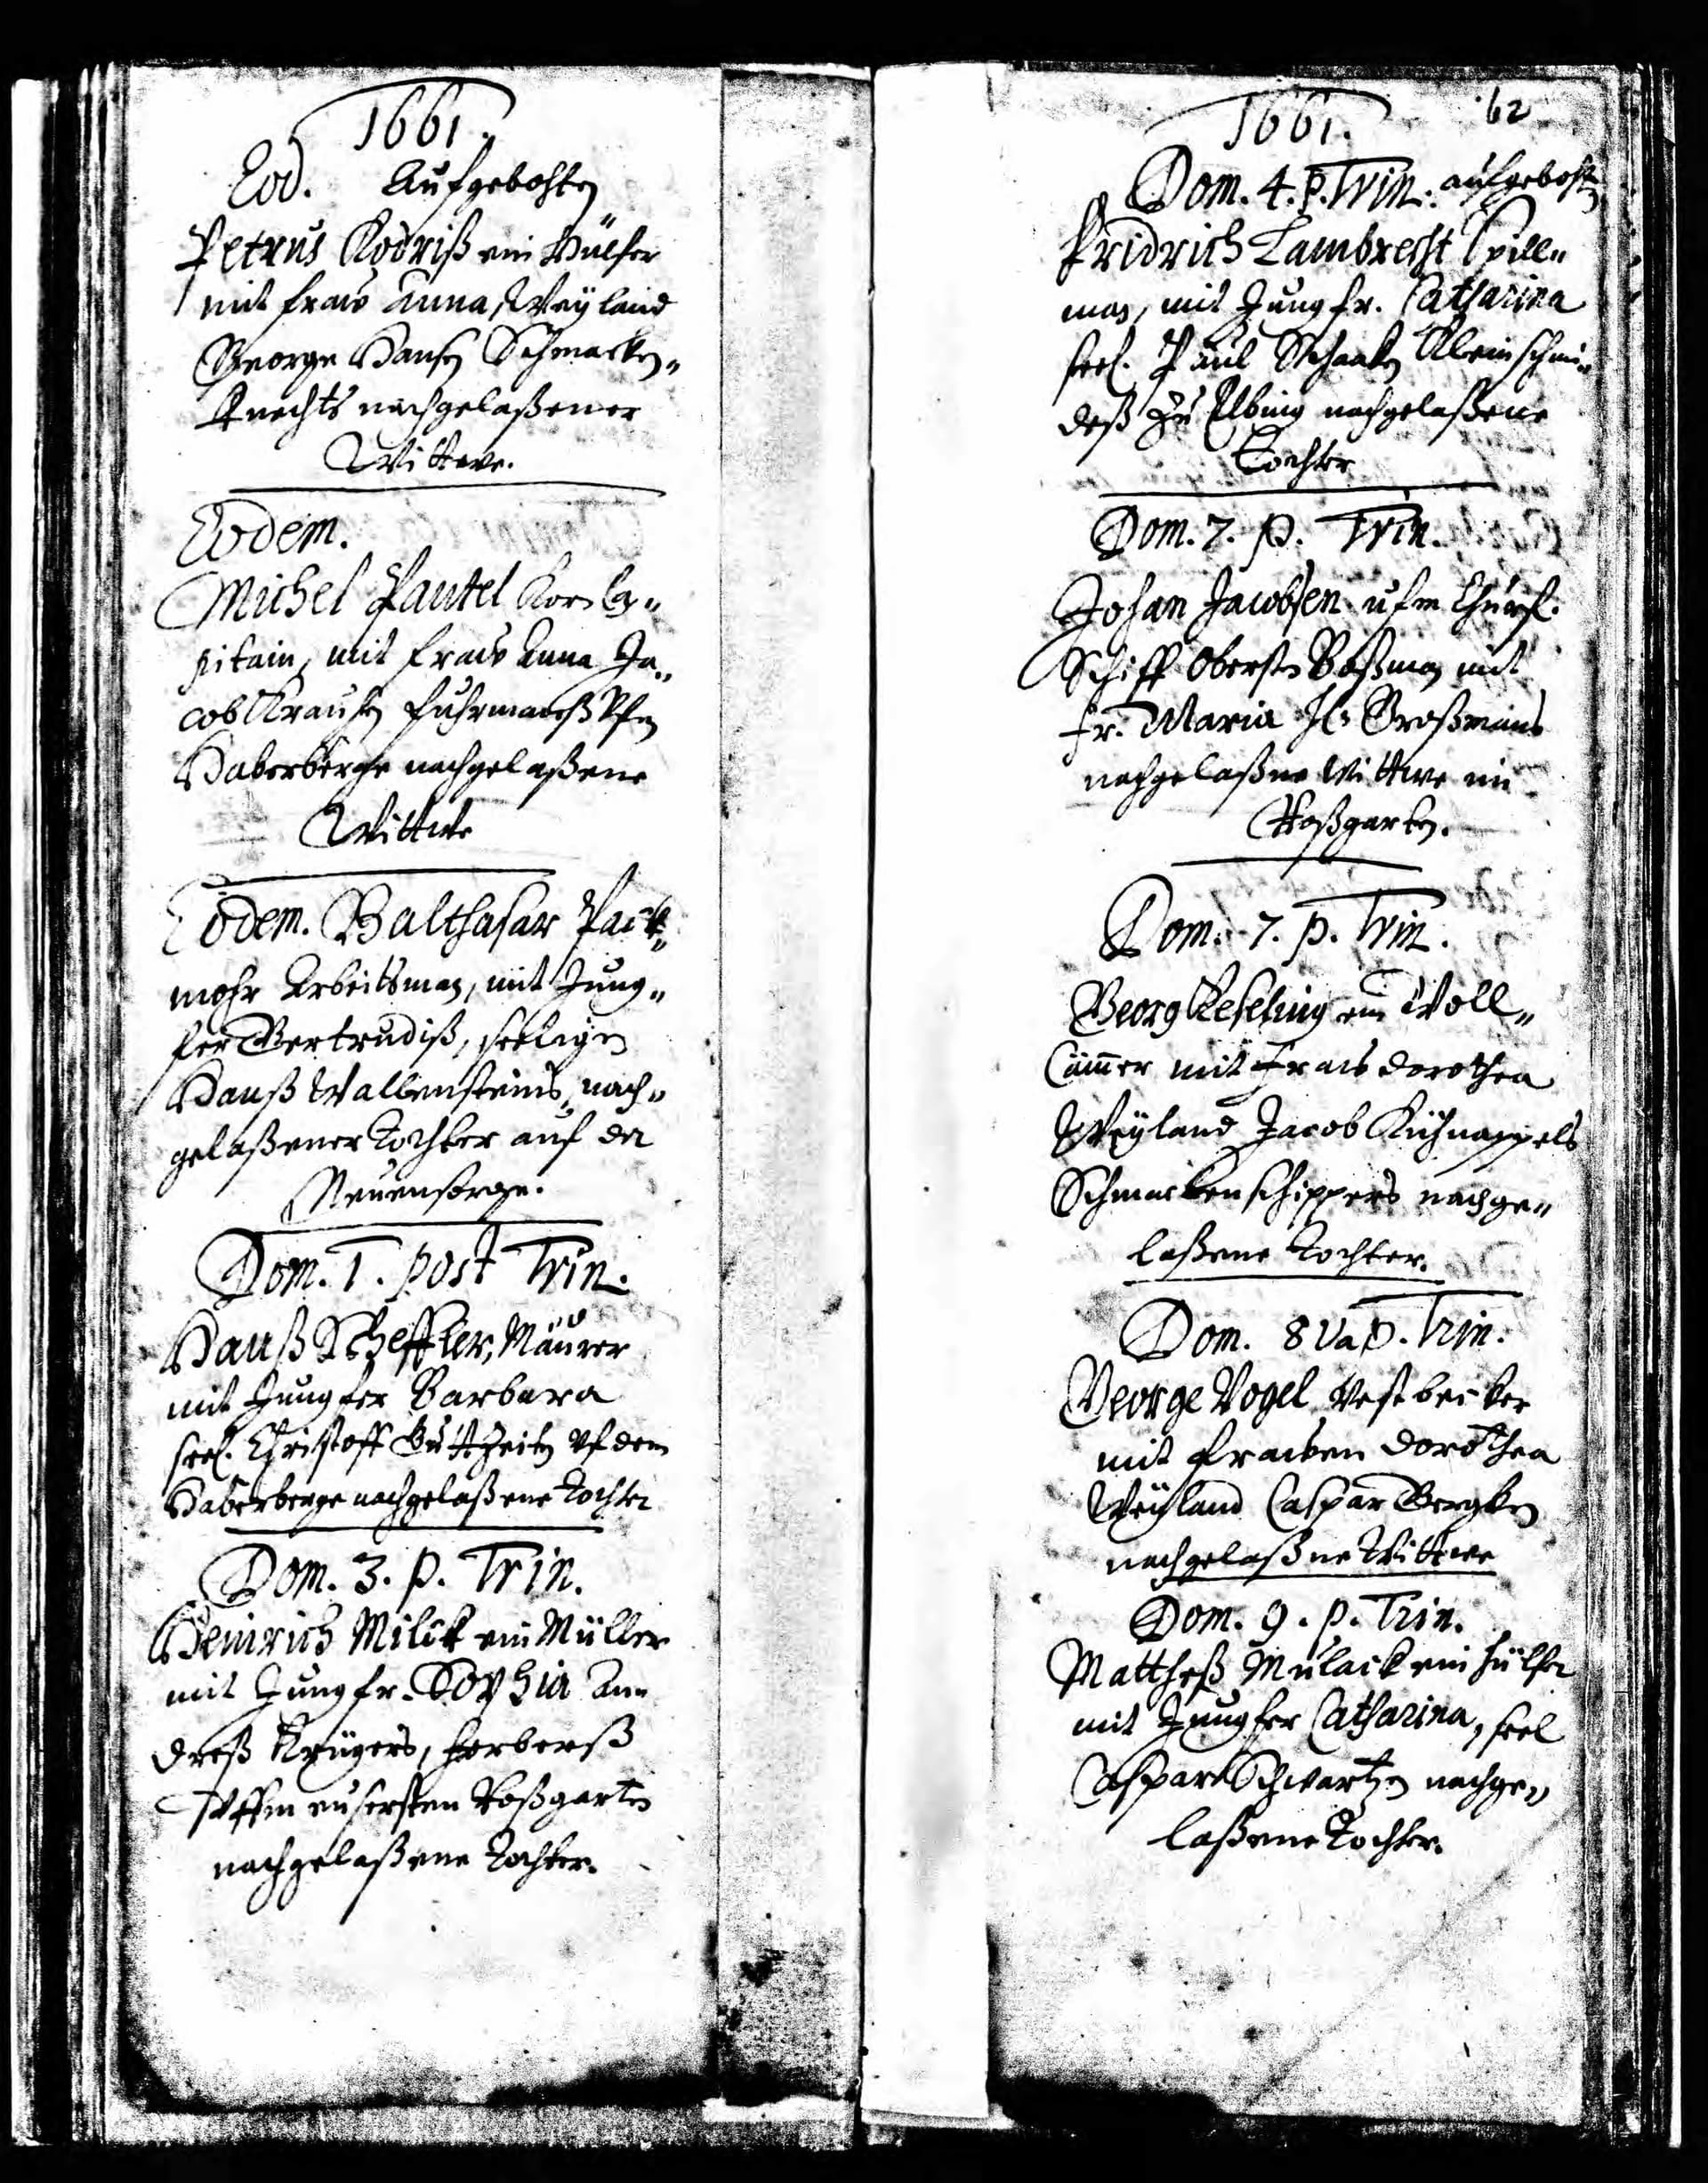 1661.
Eod. Aufgebohten
Petrus Kodriß ein Hülser
mit fraw Anna, Weyland
George Hansen Schmacken„
Knechts nachgelaßener
Wittwe.
Eodem.
Michel Pantel Korn Ca„
pitain, mit fraw Anna Ja„
cob Krausen fuhrmanß Vfm
Haberberge nachgelaßene
Wittwe
Eodem. Balthasar Pack„
mohr Arbeitsman, mit Jung„
fer Gertrudiß, seeligen
Hanß Wallensteins, nach„
gelaßener Tochter auf der
Neuensorge.
Dom. 1. post Trin.
Hanß Scheffler, Mäurer
mit Jungfer Barbara
seel. Christoff Guttzeiten vf dem
Haberberge nachgelaßene Tochter
Dom. 3. p. Trin.
Heinrich Milck ein Müller
mit Jungfr. Sophia An„
dreß Krügers, 
Vffm eusersten Roßgarten
nachgelaßene Tochter.
1661. 62
Dom. 4. p. Trin. aufgebohten
Fridrich Lambrecht Spill„
man, mit Jungfr. Catharina
seel. Paul Schaaken Kleinschmi„
deß zu Elbing nachgelaßene
Tochter
Dom. 7. p. Trin.
Johan Jacobsen ufm Churfl.
Schiff Oberster Boßman mit
fr. Maria Großmans
nachgelaßne Wittwe im
Roßgarten.
Dom. 7. p. Trin.
Georg Keseling ein Woll„
Cämmer mit Fraw Dorothea
Weyland Jacob Kühnappels
Schmackenschippers nachge„
laßene Tochter.
Dom. 8va p. Trin.
George Vogel Vestbecker
mit frawen Dorothea
Weyland Caspar Bergken
nachgelaßne Wittwe
Dom. 9. p. Trin.
Mattheß Mulack ein Hülser
mit Jungfer Catharina, seel
Caspar Schwartzen nachge„
laßene Tochter.